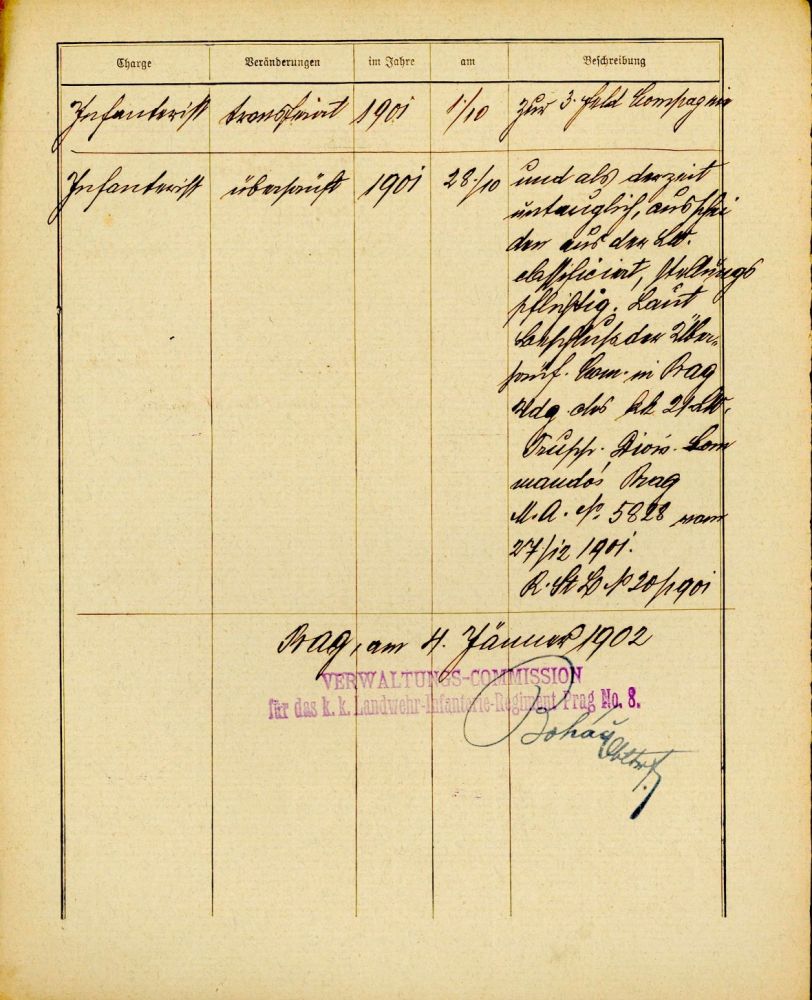 Charge Veränderungen im Jahre am Beschreibung
Infanterist transferirt 1901 1/10 zur 3. Feld Compagnie
Infanterist überprüft 1901 28./10 und als derzeit
untauglich, ausschei
den aus der Lw.
classificirt, stellungs
pflichtig. Laut
Beschluß der Über-
prüf. Com. in Prag
Vdg. des kk 21. LW.
Trupp. Divis. Com
mandos Prag
M.A. No. 5828 vom
27/12 1901.
R. St B N 20/1901
Prag, am 4. Jänner 1902
VERWALTUNGS-COMMISSION
für das k. k. Landwehr-Infanterie-Regiment Prag No. 8.